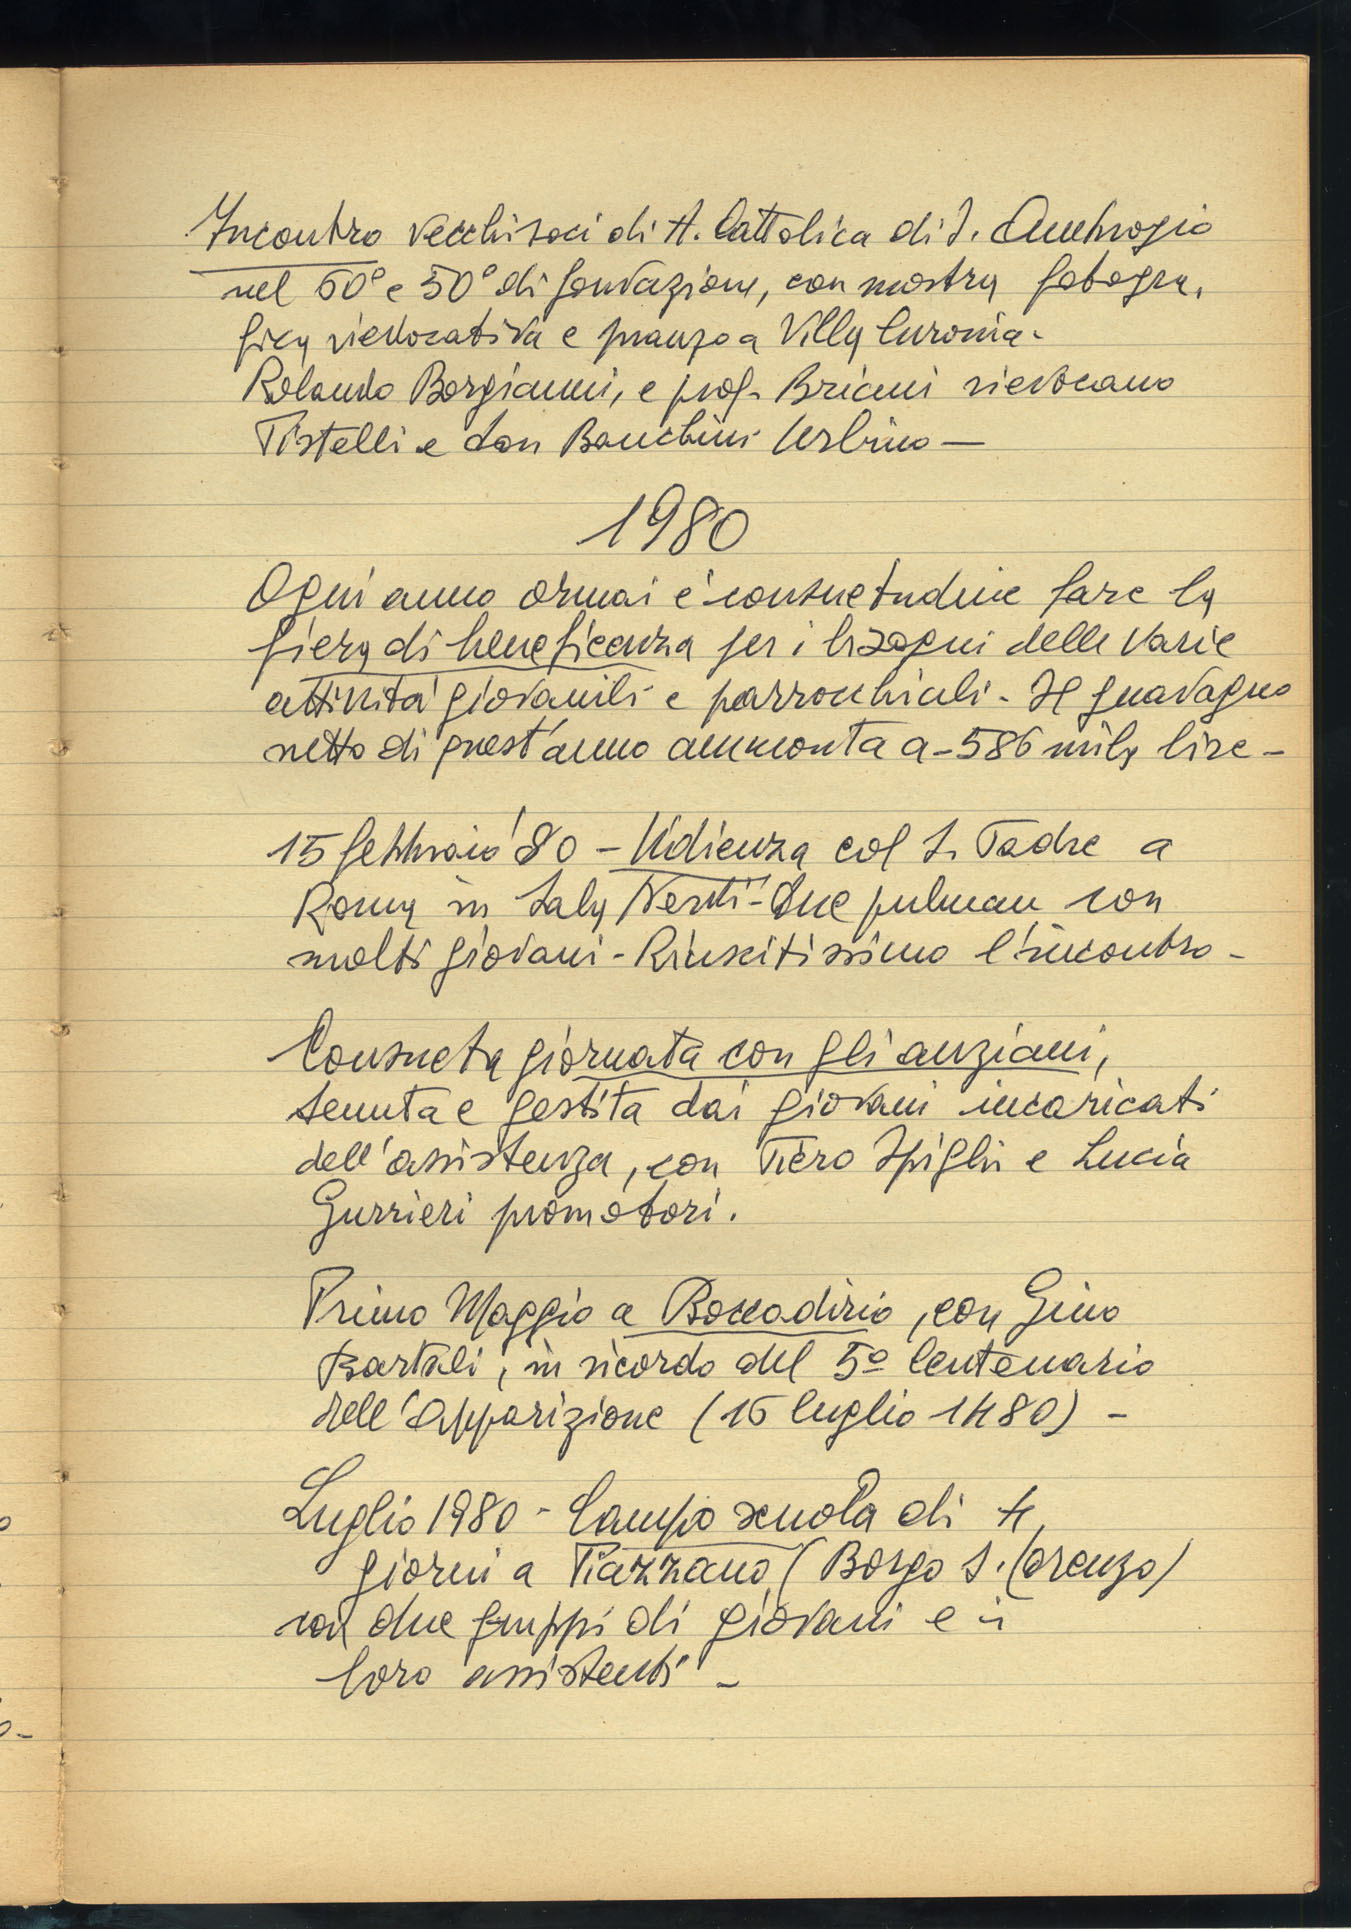 Incontro vecchi soci di A. Cattolica di S. Ambrogio
nel 60° e 50° di fondazione, con mostra fotogra,
fica rievocativa e pranzo a Villa Curonia -
Rolando Borgianni, e prof. Briani rievocano
Pistelli e don Bianchini Urbino —
1980
Ogni anno ormai è consuetudine fare la
fiera di beneficenza per i bisogni delle varie
attività giovanili e parrocchiali - Il guadagno
netto di quest'anno ammonta a - 586 mila lire -
15 febbraio '80 - Udienza col S. Padre a
Roma in Sala Nervi - Due pulman con
molti giovani - Riuscitissimo l'incontro -
Consueta giornata con gli anziani,
tenuta e gestita dai giovani incaricati
dell'assistenza, con Piero Spighi e Lucia
Gurrieri promotori.
Primo Maggio a Boccadirio, con Gino
Bartali, in ricordo del 5º Centenario
dell'Apparizione (16 luglio 1480) -
Luglio 1980 - Campo scuola di
giorni a Piazzano (Borgo S. Lorenzo)
con due gruppi di giovani e i
loro assistenti -